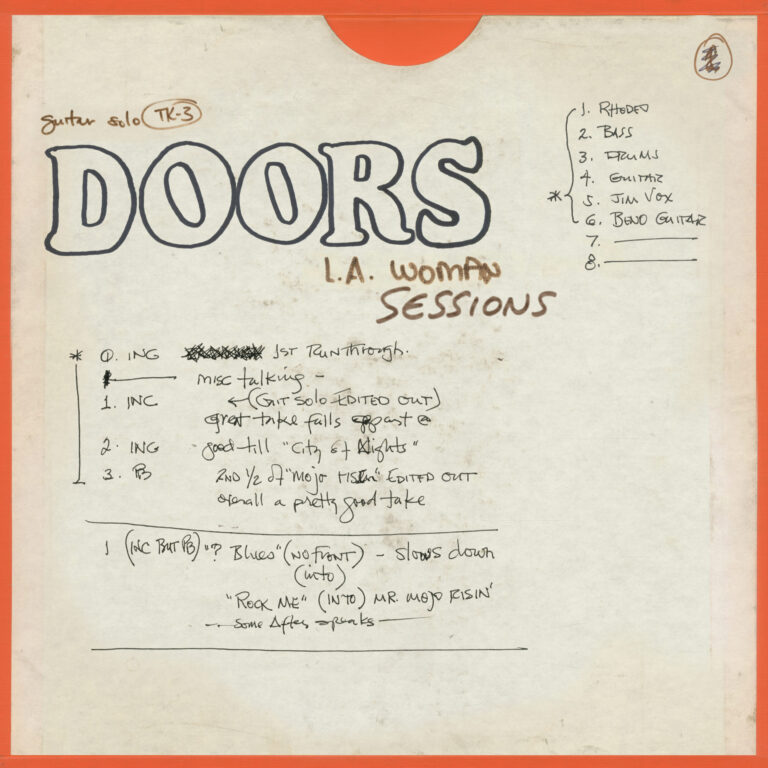 guitar solo TK-3
DOORS
L.A. WOMAN
SESSIONS
1. RHODES
2. BASS
3. DRUMS
4. GUITAR
* 5. JIM VOX
6. BENO GUITAR
7. ———
8. ———
* 0. INC 1ST RUNTHROUGH.
misc talking –
1. INC ←(GIT SOLO EDITED OUT)
great take falls appart @
2. INC good till "City of Nights"
3. PB 2ND 1/2 of "MOJO RISIN" EDITED OUT
overall a pretty good take
1 (INC BUT PB) "? Blues" (NO FRONT) – slows down
(into)
"ROCK ME" (INTO) MR. MOJO RISIN'
— some After speaks —